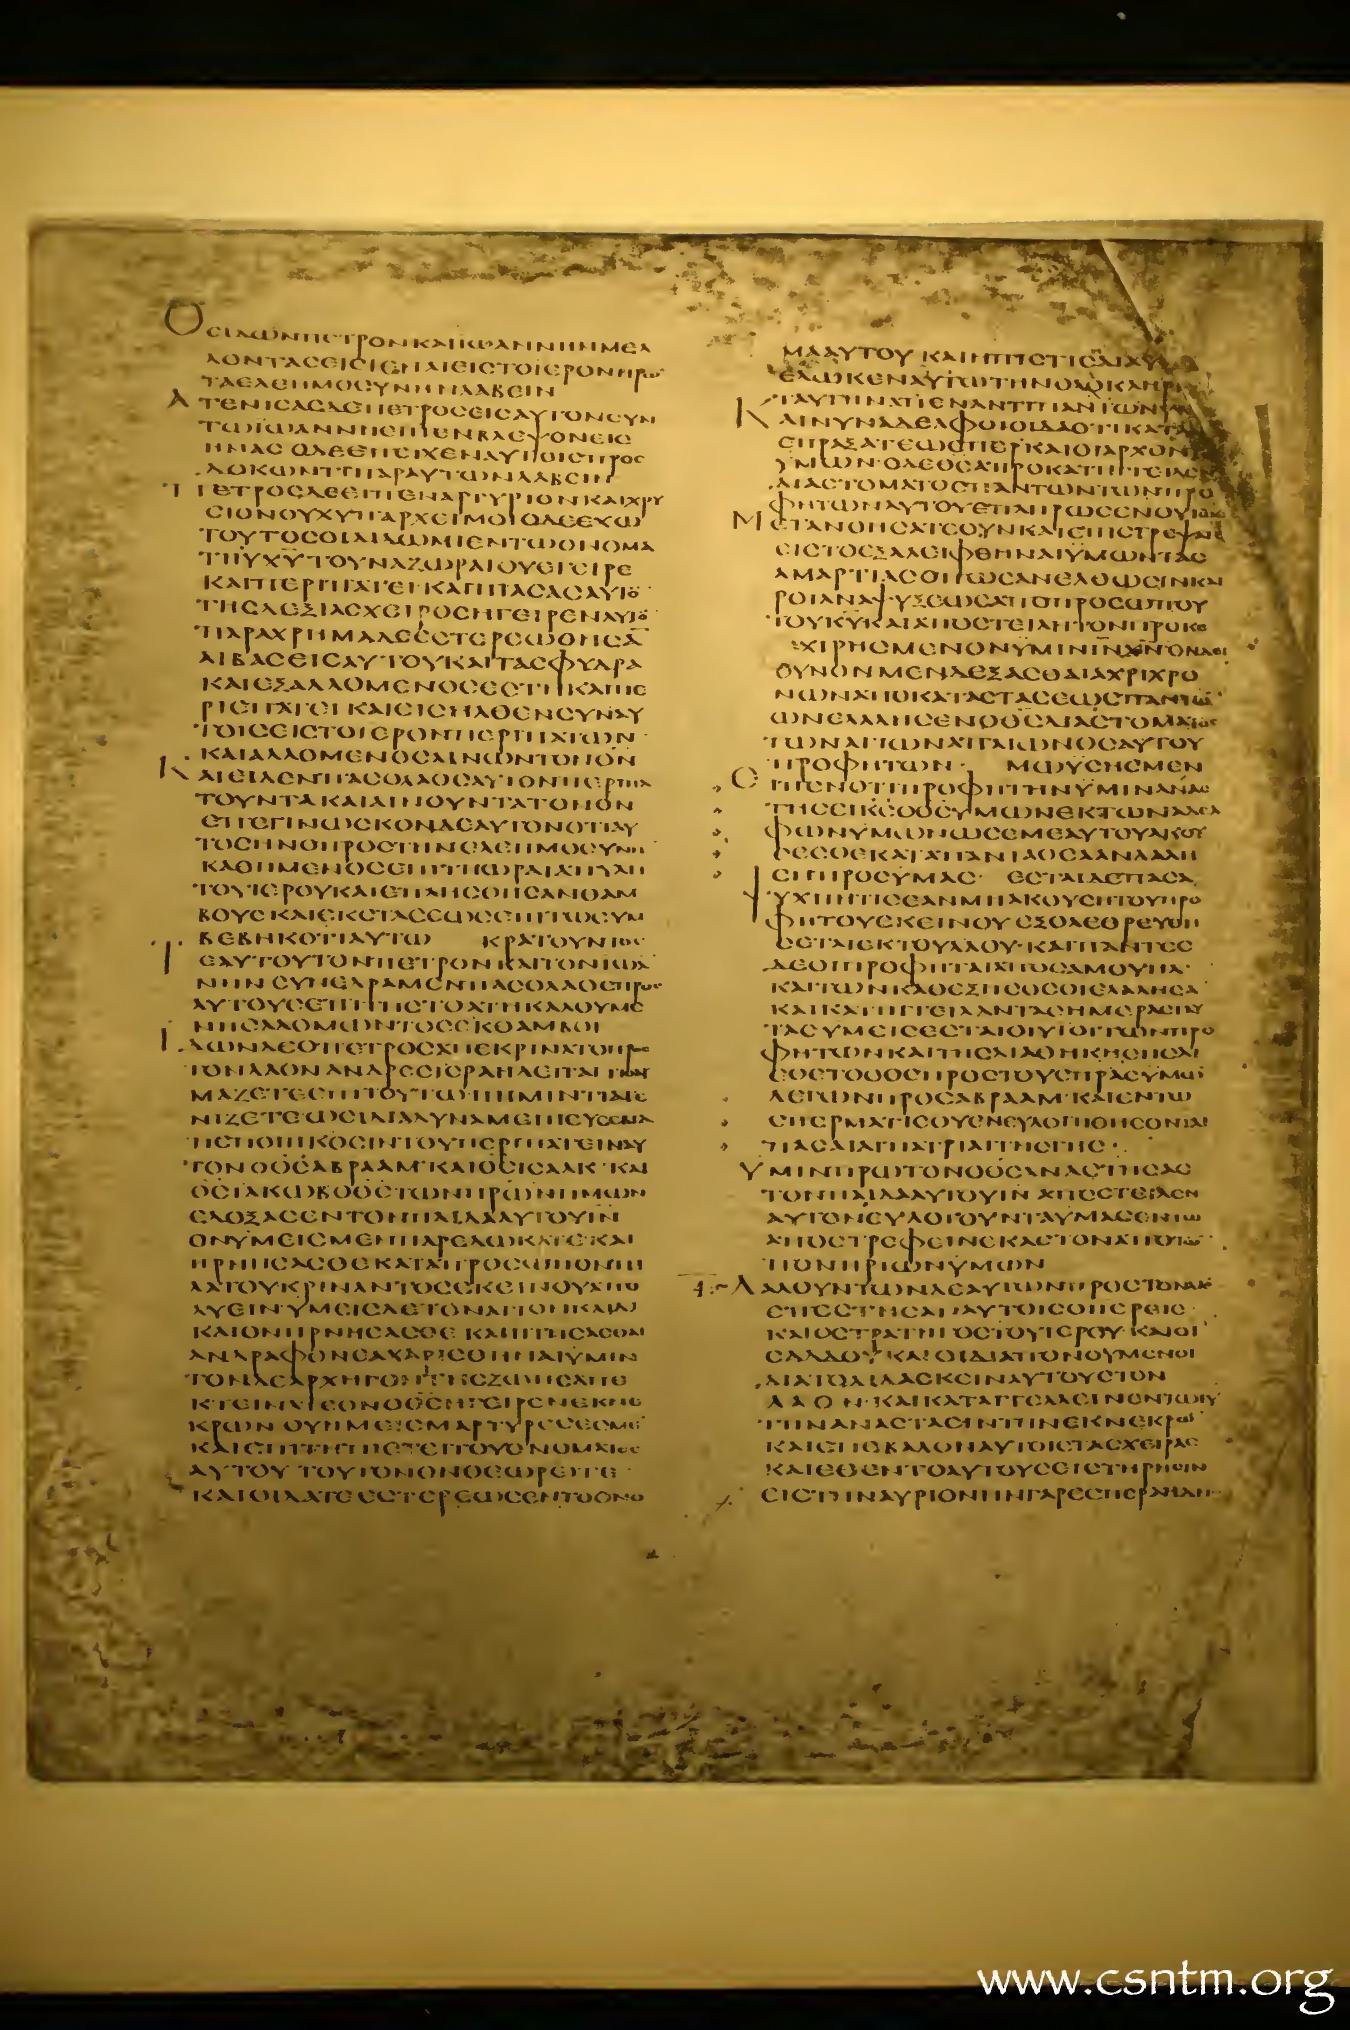 ΟϹΙΔΩΝΠΕΤΡΟΝΚΑΙΙΩΑΝΝΗΝΜΕΛ
ΛΟΝΤΑϹΕΙϹΙΕΝΑΙΕΙϹΤΟΙΕΡΟΝΗΡΩ
ΤΑΕΛΕΗΜΟϹΥΝΗΝΛΑΒΕΙΝ
ΑΤΕΝΙϹΑϹΔΕΠΕΤΡΟϹΕΙϹΑΥΤΟΝϹΥΝ
ΤΩΙΩΑΝΝΗΕΙΠΕΝΒΛΕΨΟΝΕΙϹ
ΗΜΑϹ ΟΔΕΕΠΕΙΧΕΝΑΥΤΟΙϹΠΡΟϹ
ΔΟΚΩΝΤΙΠΑΡΑΥΤΩΝΛΑΒΕΙΝ
ΠΕΤΡΟϹΔΕΕΙΠΕΝΑΡΓΥΡΙΟΝΚΑΙΧΡΥ
ϹΙΟΝΟΥΧΥΠΑΡΧΕΙΜΟΙΟΔΕΕΧΩ
ΤΟΥΤΟϹΟΙΔΙΔΩΜΙΕΝΤΩΟΝΟΜΑ
ΤΙΙΥΧΥΤΟΥΝΑΖΩΡΑΙΟΥΕΓΕΙΡΕ
ΚΑΙΠΕΡΙΠΑΤΕΙ ΚΑΙΠΙΑϹΑϹΑΥΤΟ
ΤΗϹΔΕΞΙΑϹΧΕΙΡΟϹΗΓΕΙΡΕΝΑΥΤΟ
ΠΑΡΑΧΡΗΜΑΔΕΕϹΤΕΡΕΩΘΗϹΑ
ΑΙΒΑϹΕΙϹΑΥΤΟΥΚΑΙΤΑϹΦΥΔΡΑ
ΚΑΙΕΞΑΛΛΟΜΕΝΟϹΕϹΤΗ ΚΑΙΠΕ
ΡΙΕΠΑΤΕΙ ΚΑΙΕΙϹΗΛΘΕΝϹΥΝΑΥ
ΤΟΙϹΕΙϹΤΟΙΕΡΟΝΠΕΡΙΠΑΤΩΝ
ΚΑΙΑΛΛΟΜΕΝΟϹΑΙΝΩΝΤΟΝΘΝ
ΚΑΙΕΙΔΕΝΠΑϹΟΛΑΟϹΑΥΤΟΝΠΕΡΙΠΑ
ΤΟΥΝΤΑ ΚΑΙΑΙΝΟΥΝΤΑΤΟΝΘΝ
ΕΠΕΓΙΝΩϹΚΟΝΔΕΑΥΤΟΝΟΤΙΑΥ
ΤΟϹΗΝΟΠΡΟϹΤΗΝΕΛΕΗΜΟϹΥΝΗ
ΚΑΘΗΜΕΝΟϹΕΠΙΤΗΩΡΑΙΑΠΥΛΗ
ΤΟΥΙΕΡΟΥΚΑΙΕΠΛΗϹΘΗϹΑΝΘΑΜ
ΒΟΥϹ ΚΑΙΕΚϹΤΑϹΕΩϹΕΠΙΤΩϹΥΜ
ΒΕΒΗΚΟΤΙΑΥΤΩ ΚΡΑΤΟΥΝΤΟϹ
ΔΕΑΥΤΟΥΤΟΝΠΕΤΡΟΝΚΑΙΤΟΝΙΩΑ
ΝΗΝ ϹΥΝΕΔΡΑΜΕΝΠΑϹΟΛΑΟϹΠΡΟϹ
ΑΥΤΟΥϹΕΠΙΤΗϹΤΟΑΤΗΚΑΛΟΥΜΕ
ΝΗϹΑΛΟΜΩΝΤΟϹΕΚΘΑΜΒΟΙ
ΙΔΩΝΔΕΟΠΕΤΡΟϹΑΠΕΚΡΙΝΑΤΟΠΡΟϹ
ΤΟΝΛΑΟΝΑΝΔΡΕϹΙϹΡΑΗΛΕΙΤΑΙ ΤΙΘΑΥ
ΜΑΖΕΤΕΕΠΙΤΟΥΤΩΗΗΜΙΝΤΙΑΤΕ
ΝΙΖΕΤΕΩϹΙΔΙΑΔΥΝΑΜΕΙΗΕΥϹΕΒΕΙΑ
ΠΕΠΟΙΗΚΟϹΙΝΤΟΥΠΕΡΙΠΑΤΕΙΝΑΥ
ΤΟΝ ΟΘϹΑΒΡΑΑΜ ΚΑΙΟΘϹΙϹΑΑΚ ΚΑΙ
ΟΘϹΙΑΚΩΒΟΘϹΤΩΝΠΡΩΝΗΜΩΝ
ΕΔΟΞΑϹΕΝΤΟΝΠΑΙΔΑΑΥΤΟΥΙΝ
ΟΝΥΜΕΙϹΜΕΝΠΑΡΕΔΩΚΑΤΕ ΚΑΙ
ΗΡΝΗϹΑϹΘΕΚΑΤΑΠΡΟϹΩΠΟΝΠΙ
ΛΑΤΟΥΚΡΙΝΑΝΤΟϹΕΚΕΙΝΟΥΑΠΟ
ΛΥΕΙΝ ΥΜΕΙϹΔΕΤΟΝΑΓΙΟΝΚΑΙΔΙ
ΚΑΙΟΝΗΡΝΗϹΑϹΘΕ ΚΑΙΗΤΗϹΑϹΘΑΙ
ΑΝΔΡΑΦΟΝΕΑΧΑΡΙϹΘΗΝΑΙΥΜΙΝ
ΤΟΝΔΕΑΡΧΗΓΟΝΤΗϹΖΩΗϹΑΠΕ
ΚΤΕΙΝΑΤΕΟΝΟΘϹΗΓΕΙΡΕΝΕΚΝΕ
ΚΡΩΝ ΟΥΗΜΕΙϹΜΑΡΤΥΡΕϹΕϹΜΕ
ΚΑΙΕΠΙΤΗΠΙϹΤΕΙΤΟΥΟΝΟΜΑΤΟϹ
ΑΥΤΟΥ ΤΟΥΤΟΝΟΝΘΕΩΡΕΙΤΕ
ΚΑΙΟΙΔΑΤΕΕϹΤΕΡΕΩϹΕΝΤΟΟΝΟ
ΜΑΑΥΤΟΥ ΚΑΙΗΠΙϹΤΙϹ
ΕΔΩΚΕΝΑΥΤΩΤΗΝ
ΤΑΥΤΗΝΑΠΕΝΑΝΤΙΠΑΝΤΩΝ
ΚΑΙΝΥΝΑΔΕΛΦΟΙΟΙΔΑΟΤΙΚΑΤΑ
ΕΠΡΑΞΑΤΕΩϹΠΕΡΚΑΙΟΙΑΡΧΟΝ
ΥΜΩΝ ΟΔΕΘϹΑΠΡΟΚΑΤΗΓΓΕΙΛΕ
ΔΙΑϹΤΟΜΑΤΟϹΠΑΝΤΩΝΤΩΝΠΡΟ
ΦΗΤΩΝΑΥΤΟΥΕΠΛΗΡΩϹΕΝΟΥΤΩϹ
ΜΕΤΑΝΟΗϹΑΤΕΟΥΝΚΑΙΕΠΙϹΤΡΕΨΑΤΕ
ΕΙϹΤΟΕΞΑΛΕΙΦΘΗΝΑΙΥΜΩΝΤΑϹ
ΑΜΑΡΤΙΑϹΟΠΩϹΑΝΕΛΘΩϹΙΝΚΑΙ
ΡΟΙΑΝΑΨΥΞΕΩϹΑΠΟΠΡΟϹΩΠΟΥ
ΤΟΥΚΥΚΑΙΑΠΟϹΤΕΙΛΗΤΟΝΠΡΟΚΕ
ΧΙΡΗϹΜΕΝΟΝΥΜΙΝΙΝΧΝΟΝΔΕΙ
ΟΥΝΟΝΜΕΝΔΕΞΑϹΘΑΙΑΧΡΙΧΡΟ
ΝΩΝΑΠΟΚΑΤΑϹΤΑϹΕΩϹΠΑΝΤΩ
ΩΝΕΛΑΛΗϹΕΝΟΘϹΔΙΑϹΤΟΜΑΤΟϹ
ΤΩΝΑΓΙΩΝΑΠΑΙΩΝΟϹΑΥΤΟΥ
ΠΡΟΦΗΤΩΝ ΜΩΥϹΗϹΜΕΝ
ΕΙΠΕΝΟΤΙΠΡΟΦΗΤΗΝΥΜΙΝΑΝΑϹ
ΤΗϹΕΙΚϹΟΘϹΥΜΩΝΕΚΤΩΝΑΔΕΛ
ΦΩΝΥΜΩΝΩϹΕΜΕΑΥΤΟΥΑΚΟΥ
ϹΕϹΘΕΚΑΤΑΠΑΝΤΑΟϹΑΑΝΛΑΛΗ
ϹΗΠΡΟϹΥΜΑϹ ΕϹΤΑΙΔΕΠΑϹΑ
ΨΥΧΗΗΤΙϹΕΑΝΜΗΑΚΟΥϹΗΤΟΥΠΡΟ
ΦΗΤΟΥΕΚΕΙΝΟΥ ΕΞΟΛΕΘΡΕΥΘΗ
ϹΕΤΑΙΕΚΤΟΥΛΑΟΥ ΚΑΙΠΑΝΤΕϹ
ΔΕΟΙΠΡΟΦΗΤΑΙΑΠΟϹΑΜΟΥΗΛ
ΚΑΙΤΩΝΚΑΘΕΞΗϹΟϹΟΙΕΛΑΛΗϹΑ
ΚΑΙΚΑΤΗΓΓΕΙΛΑΝΤΑϹΗΜΕΡΑϹΤΑΥ
ΤΑϹ ΥΜΕΙϹΕϹΤΑΙΟΙΥΙΟΙΤΩΝΠΡΟ
ΦΗΤΩΝΚΑΙΤΗϹΔΙΑΘΗΚΗϹΗϹΔΙ
ΕΘΕΤΟΟΘϹΠΡΟϹΤΟΥϹΠΡΑϹΥΜΩ
ΛΕΓΩΝΠΡΟϹΑΒΡΑΑΜ ΚΑΙΕΝΤΩ
ϹΠΕΡΜΑΤΙϹΟΥΕΝΕΥΛΟΓΗΘΗϹΟΝΤΑΙ
ΠΑϹΑΙΑΙΠΑΤΡΙΑΙΤΗϹΓΗϹ
ΥΜΙΝΠΡΩΤΟΝΟΘϹΑΝΑϹΤΗϹΑϹ
ΤΟΝΠΑΙΔΑΑΥΤΟΥΙΝ ΑΠΕϹΤΕΙΛΕΝ
ΑΥΤΟΝΕΥΛΟΓΟΥΝΤΑΥΜΑϹΕΝΤΩ
ΑΠΟϹΤΡΕΦΕΙΝΕΚΑϹΤΟΝΑΠΟΤΩ
ΠΟΝΗΡΙΩΝΥΜΩΝ
ΛΑΛΟΥΝΤΩΝΔΕΑΥΤΩΝΠΡΟϹΤΟΝΛΑΟ
ΕΠΕϹΤΗϹΑΝΑΥΤΟΙϹΟΙΙΕΡΕΙϹ
ΚΑΙΟϹΤΡΑΤΗΓΟϹΤΟΥΙΕΡΟΥ ΚΑΙΟΙ
ϹΑΔΔΟΥΚΑΙΟΙΔΙΑΠΟΝΟΥΜΕΝΟΙ
ΔΙΑΤΟΔΙΔΑϹΚΕΙΝΑΥΤΟΥϹΤΟΝ
ΛΑΟΝ ΚΑΙΚΑΤΑΓΓΕΛΛΕΙΝΕΝΤΩΙΥ
ΤΗΝΑΝΑϹΤΑϹΙΝΤΗΝΕΚΝΕΚΡΩ
ΚΑΙΕΠΕΒΑΛΟΝΑΥΤΟΙϹΤΑϹΧΕΙΡΑϹ
ΚΑΙΕΘΕΝΤΟΑΥΤΟΥϹΕΙϹΤΗΡΗϹΙΝ
ΕΙϹΤΗΝΑΥΡΙΟΝΗΝΓΑΡΕϹΠΕΡΑΗΔΗ
www.csntm.org